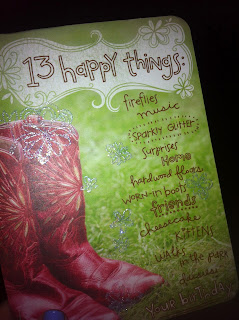 13 happy things:
fireflies
music
sparkly glitter
surprises
home
hardwood floors
worn-in boots
friends
cheesecake
kittens
walks
in the park
daisies
your birthday